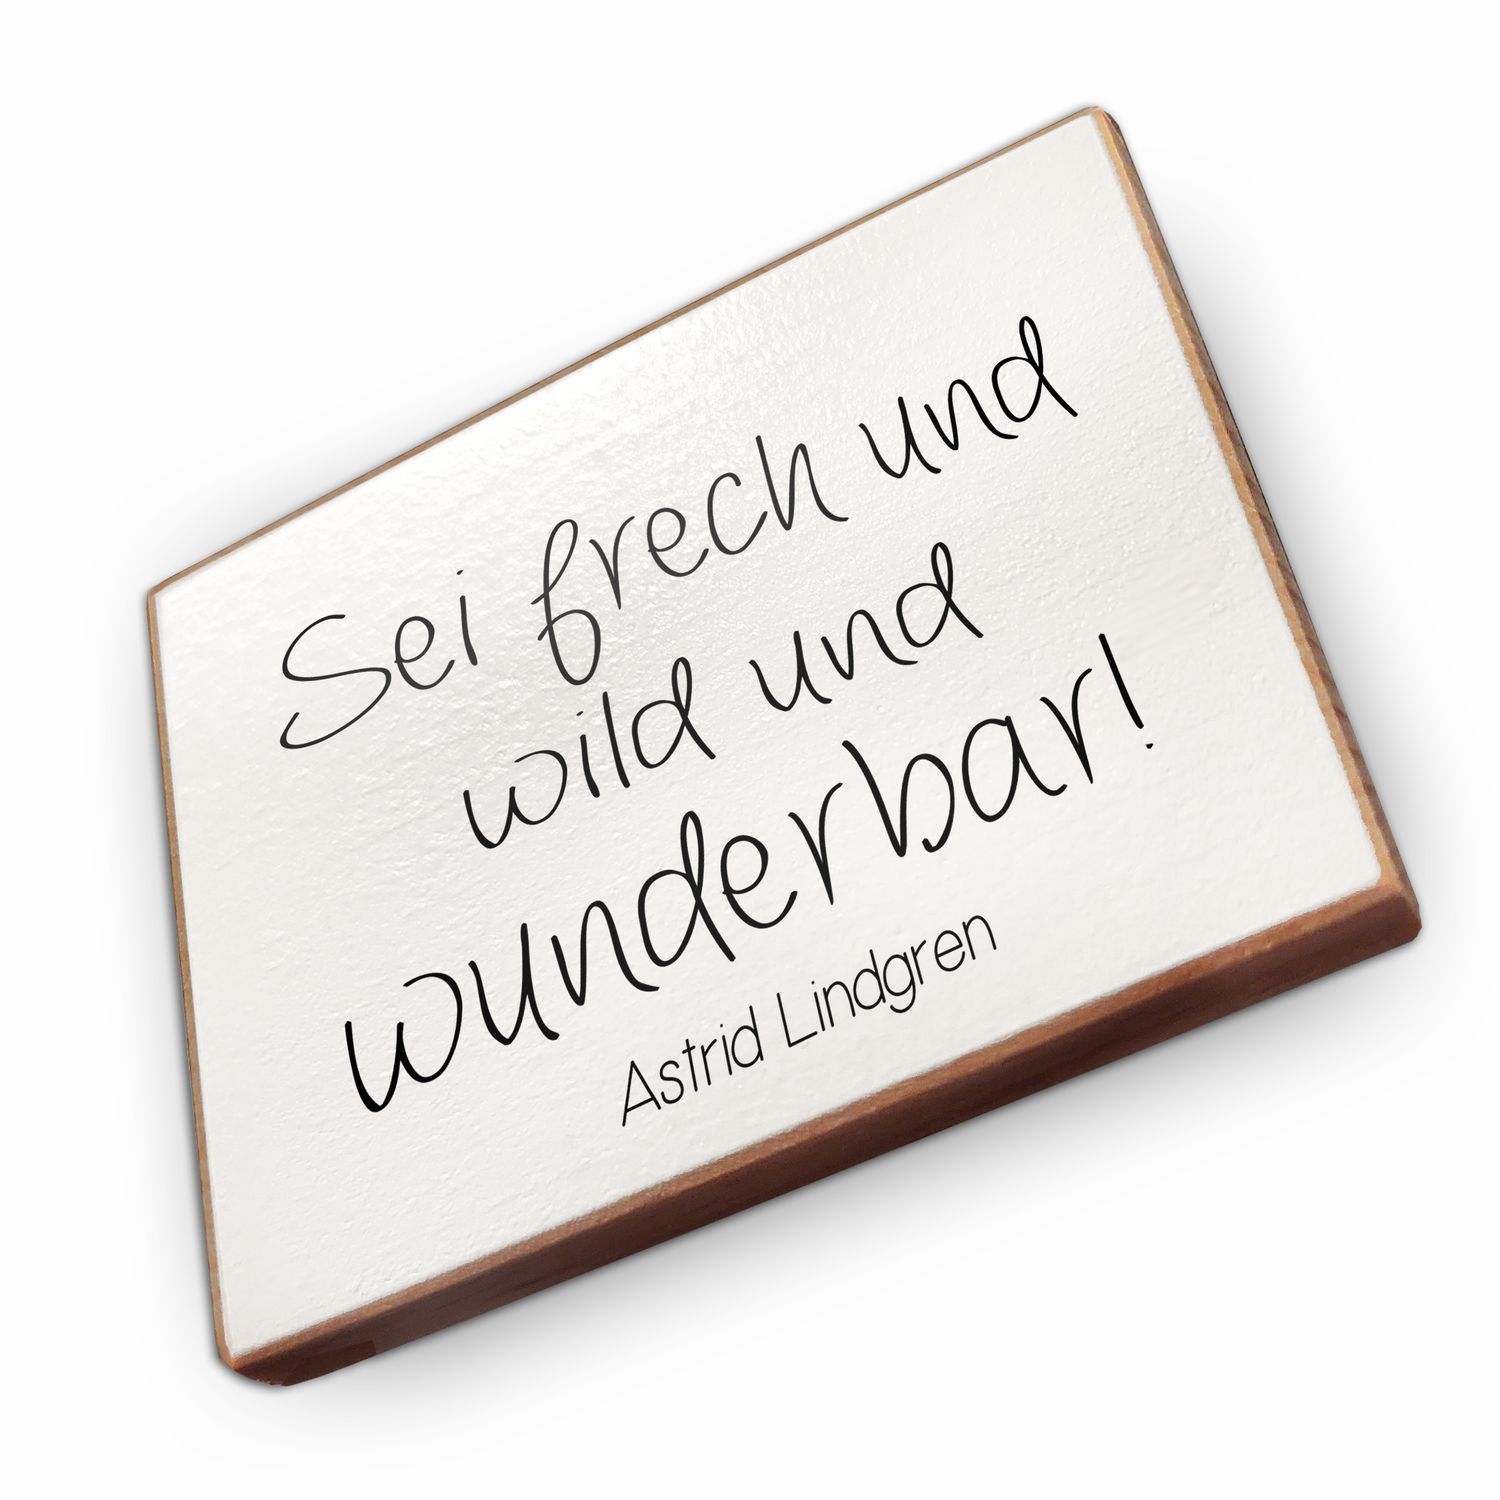 Sei frech und
wild und
wunderbar!
Astrid Lindgren